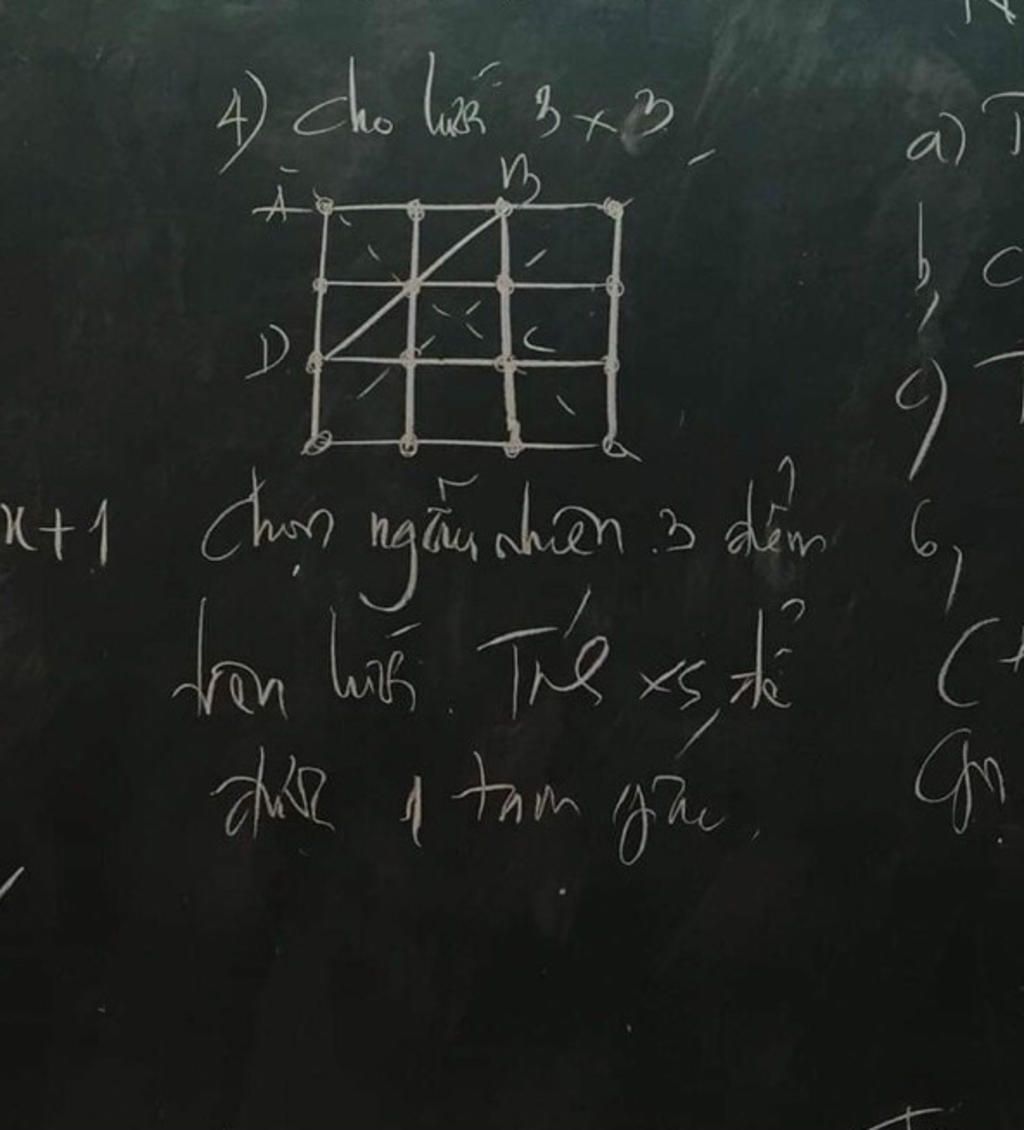 4) Cho lưới 3 × 3
A B
D C
Chọn ngẫu nhiên 3 điểm
trên lưới. Tính xs để
được 1 tam giác.
x+1
a) T
b, C
c) T
6,
(+
Gn